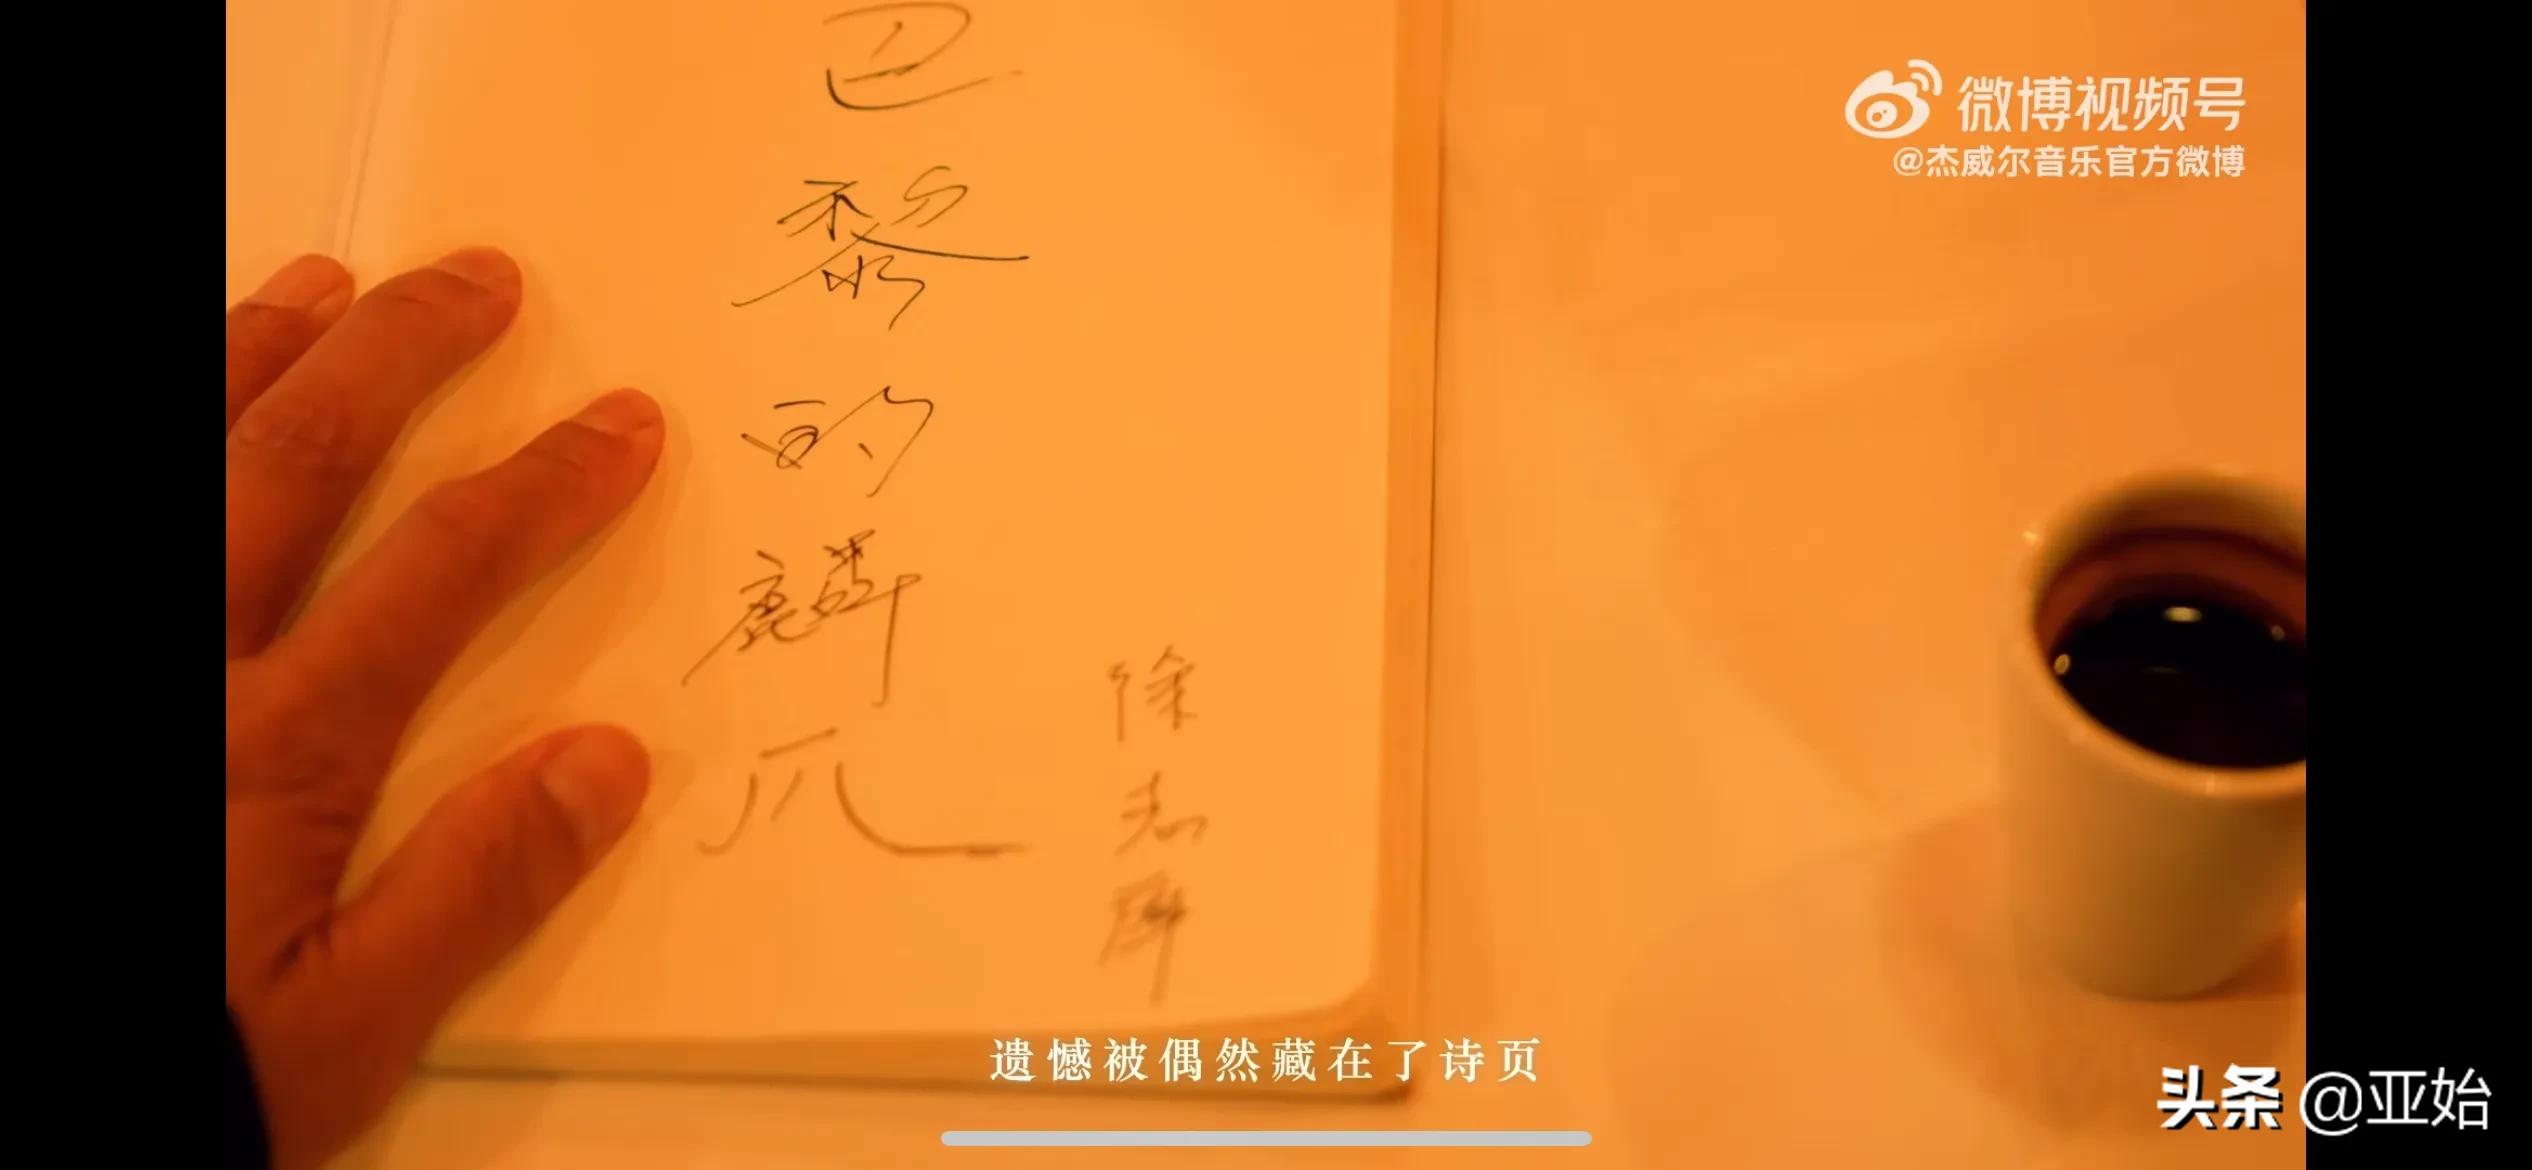 巴黎的鳞爪
徐志摩
微博视频号
@杰威尔音乐官方微博
遗憾被偶然藏在了诗页
头条 @亚始